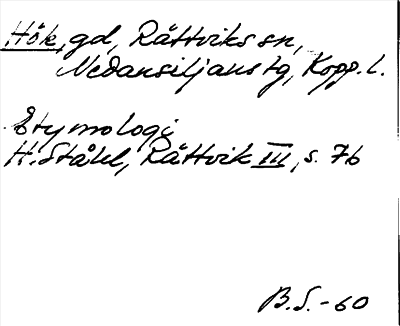 Hök, gd, Rättviks sn,
Nedansiljans tg, Kopp. l.
Etymologi
H. Ståhl, Rättvik III, s. 76
B.S.-60